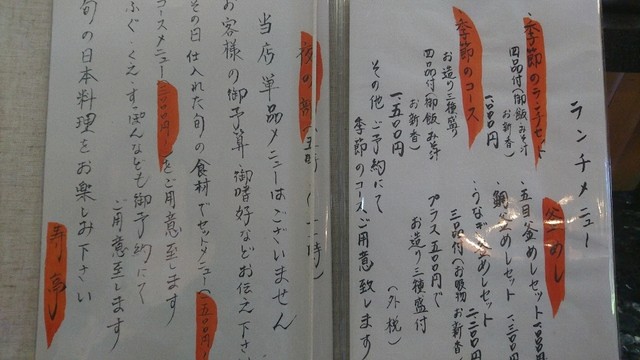 ランチメニュー
・季節のランチセット
四品付(御飯 みそ汁
お新香)
一000円
季節のコース
お造り三種盛り
四品付(御飯 みそ汁
お新香)
一五00円
その他 ご予約にて
季節のコースご用意致します
釜めし
・五目釜めしセット
・鯛釜めしセット
・うなぎ釜めしセット
三品付(お吸物 お新香
プラス五00円で
お造り三種盛付
(外税)
夜の部
当店単品メニューはございません
お客様の御予算 御嗜好などお伝え下さい
その日仕入れた旬の食材でセットメニュー(二五00円
コースメニュー(三000円~)をご用意至します
ふぐ・くえ・すっぽんなども御予約にて
ご用意至します
旬の日本料理をお楽しみ下さい
寿亭